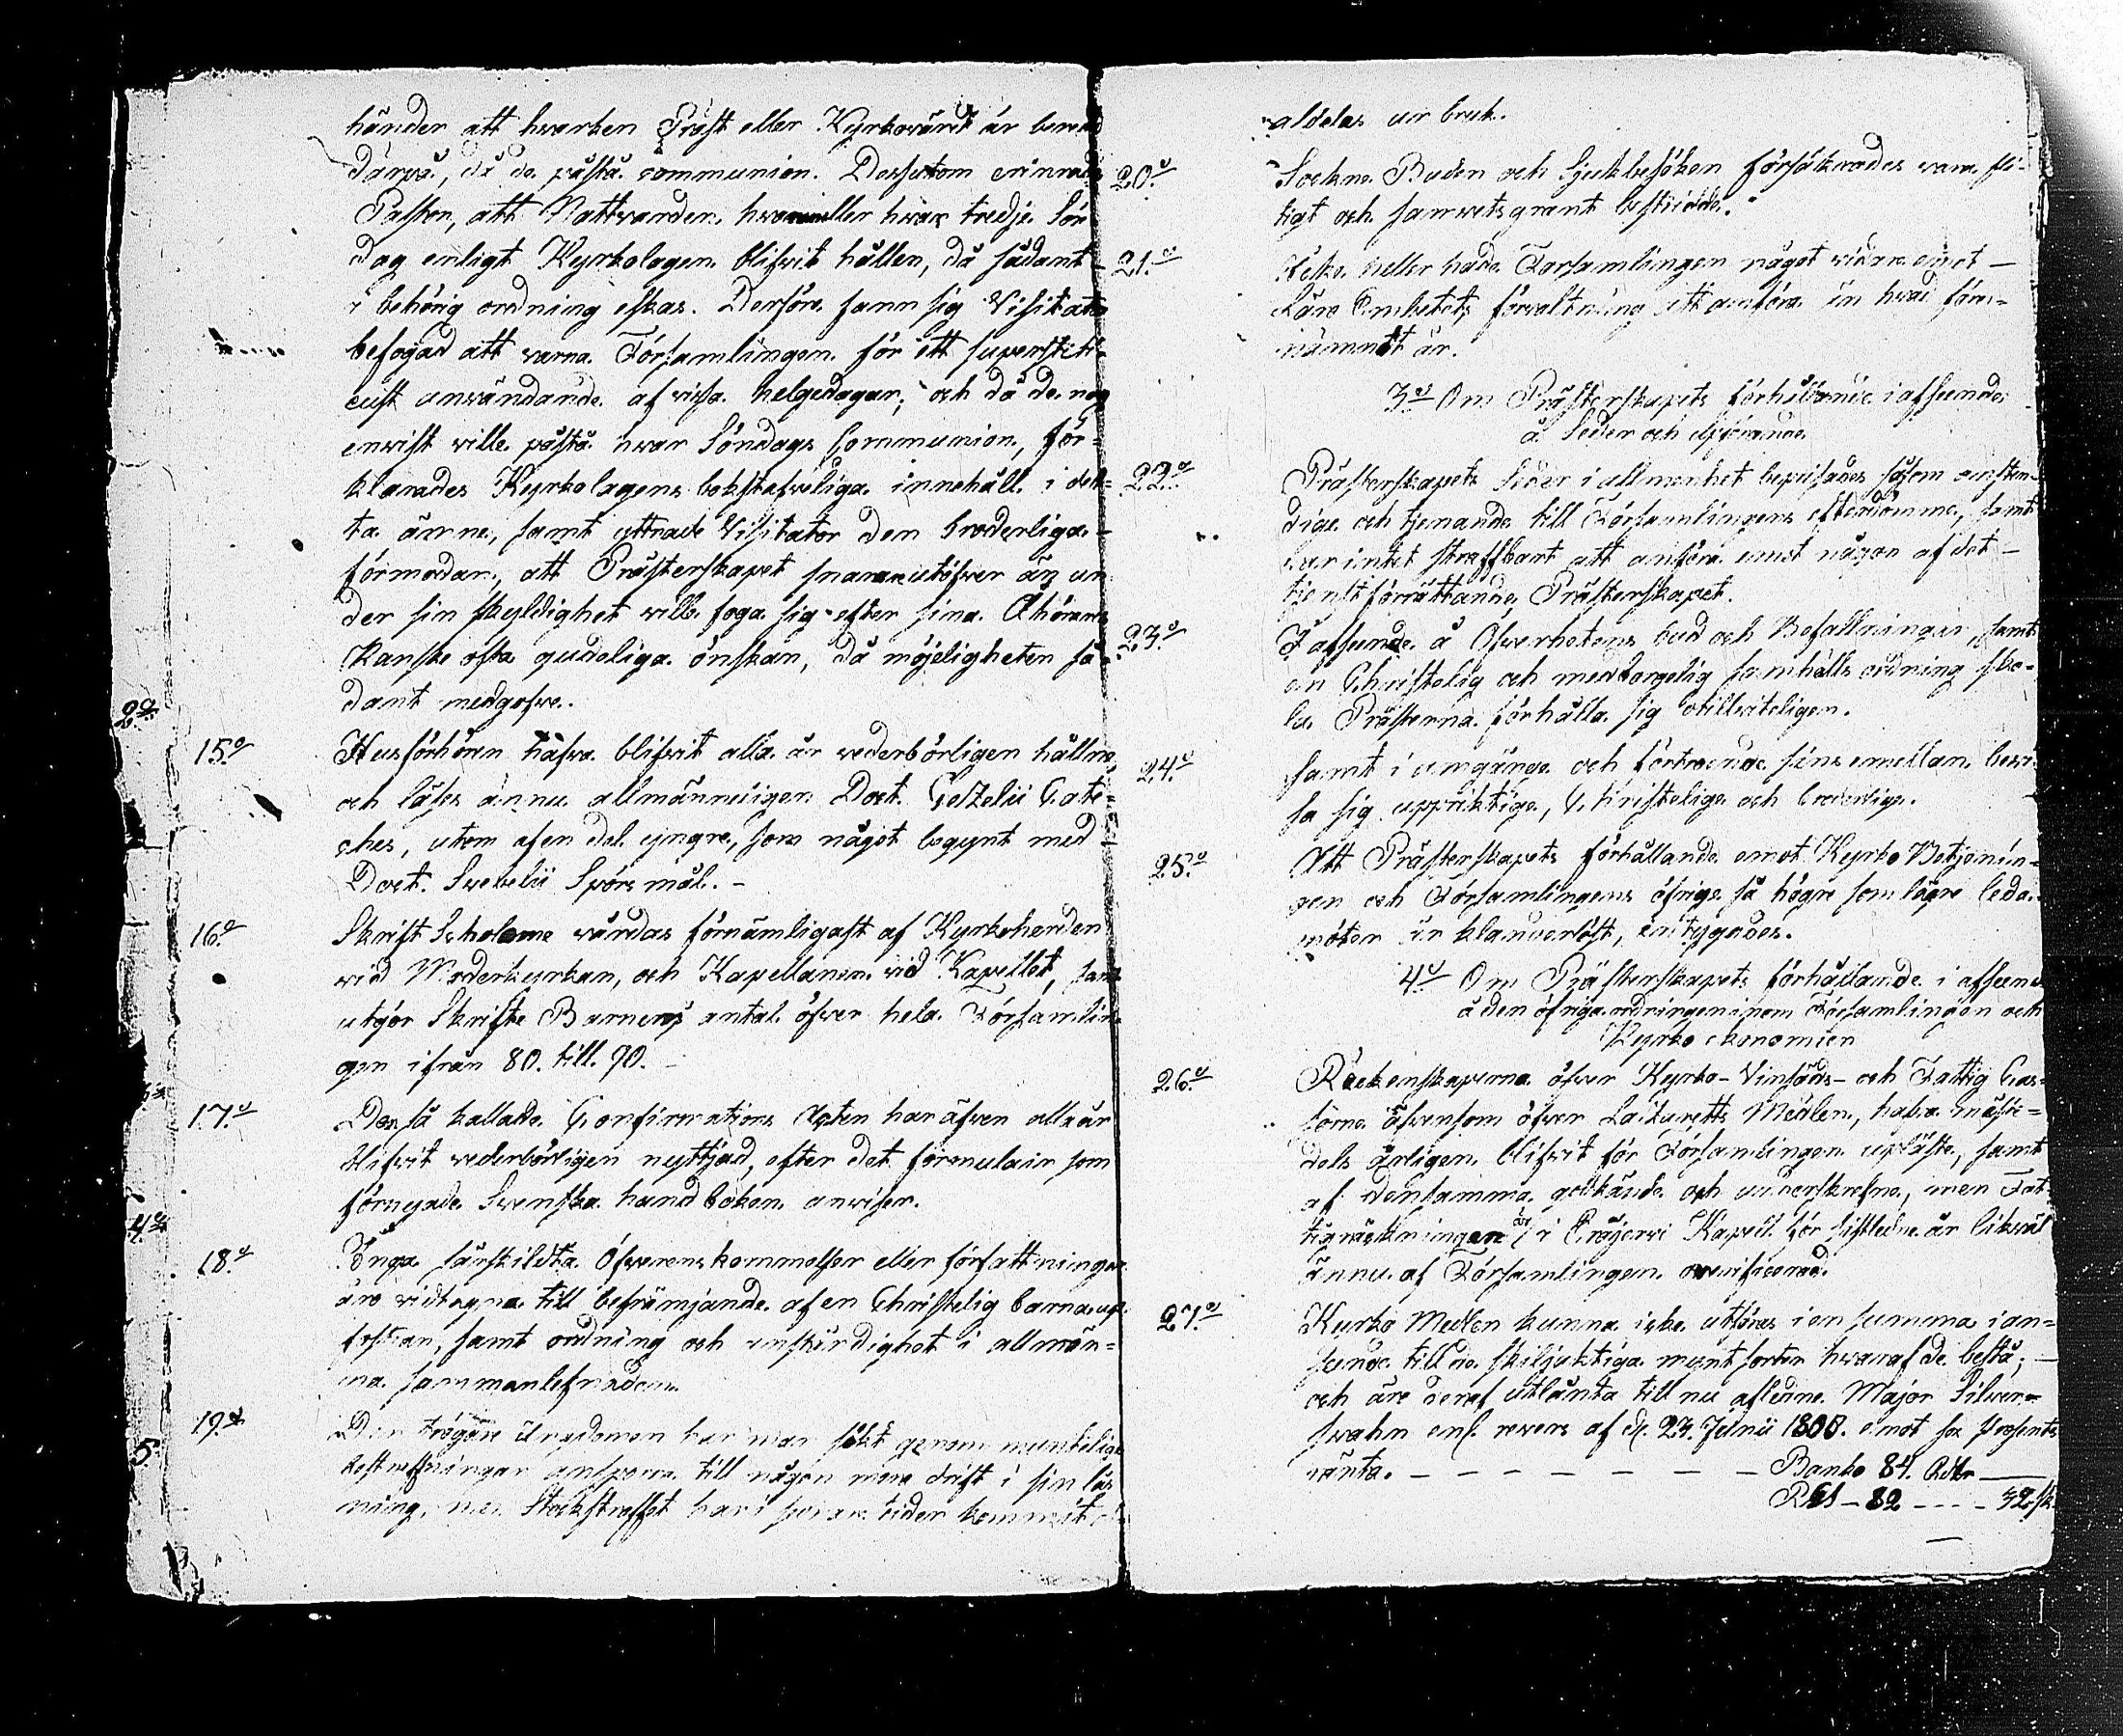 händer att hvarken Präst eller Kyrkovärd är beredd
därpå, då de påstå communion. Dessutom erinrade
Pastor, att Nattvarden, hvar eller hvar tredje Sön
dag enligt Kyrkolagen blifvit hållen, då sådant
i behörig ordning eskas. Derföre fann sig Visitator
befogad att varna Församlingen för ett superstiti
eust användande af vissa helgedagar; och då de nog
envist ville påstå hvar Söndags Communion, för-
klarades Kyrkolagens bokstafveliga innehåll i det-
ta ämne, samt yttrade Visitator den broderliga
förmodan, att Prästerskapet snarare utöfver än un
der sin skyldighet ville foga sig efter sina Åhörares
Kanske ofta gudeliga önskan, då möjeligheten så-
dant medgofve.
15:o Husförhören hafva blifvit alla år vederbörligen hållne,
och läses ännu allmänneligen Doct. Gezelii Cate-
ches, utom af en del yngre, som något begynt med
Doct. Svebelii Spörsmål. -
16:o Skrift Scholorne vårdas förnämligast af Kyrkoherden
vid Moderkyrkan, och Kapellanen vid Kapellet, samt
utgör Skrifte Barnens antal öfver hela Församlin
gen ifrån 80. till 90. -
17:o Den så kallade Confirmations Acten har äfven alla år
blifvit vederbörligen nyttjad, efter det formulair som
förnyade Svenska handboken anviser.
18:o Inga särskildta Öfverenskommelser eller författningar
äro vidtagna till befrämjande af en Christelig barnaup
fostran, samt ordning och anständighet i allmän-
na sammanlefnaden.
19:o Den trögare Ungdomen har man sökt genom muntelige
bestraffningar ansporra till någon mera drift i sin läs
ning, men Stockstraffet har i senare tider kommit
aldeles ur bruk.
20:o Sockne Buden och Sjukbesöken försäkrades vara fli-
tigt och samvetsgrant bestridde.
21:o Icke heller hade Församlingen något vidare emot
Läro Embetets förvaltning att anföra än hvad före-
nämndt är.
3:o Om Prästerskapets förhållande i afseende
å Seder och
22:o Prästerskapets Seder i allmenhet beprisades såsom anstän-
dige och tjenande till Församlingens efterdömme, samt
har intet straffbart att anföra emot någon af det
tjenstförrättande Prästerskapet.
23:o I afseende å Öfverhetens bud och Befallningar, samt
en Christelig och medborgelig samhälls ordning sko-
la Prästerna förhålla sig otillviteligen.
24:o samt i umgänge och förtroende sins emellan bevi
sa sig uppriktige, Christelige och broderlige.
25:o Att Prästerskapets förhållande emot Kyrko Betjenin-
gen och Församlingens öfrige så högre som lägre leda-
möter är klanderlöst, intygades.
4:o Om Prästerskapets förhållande i afseende
å den öfriga ordningen inom Församlingen och
Kyrko ekonomien
26:o Räckenskaperna öfver Kyrko- Vinsäds- och Fattig Cas-
sorna äfvensom öfver Lazaretts Medlen, hafva
dels årligen blifvit för Församlingen upläste, samt
af densamma godkände och underskrefne, men Fat-
tigräckningen i Kapell för sistledne år likväl
ännu af Församlingen overificerad.
27:o Kyrko Medlen kunna icke utföras i en summa i an-
seende till de skiljaktiga myntsorter hvaraf de bestå;
och äro deraf utlånta till nu aflidne Major Silver-
svahn enl. revers af d. 23. Julii 1800. emot sex Procents
ränta. - - - - - - - - Banko 84. Rdlr
RGS - 82 - - - - 32 sk.
2:o
4:o
5: